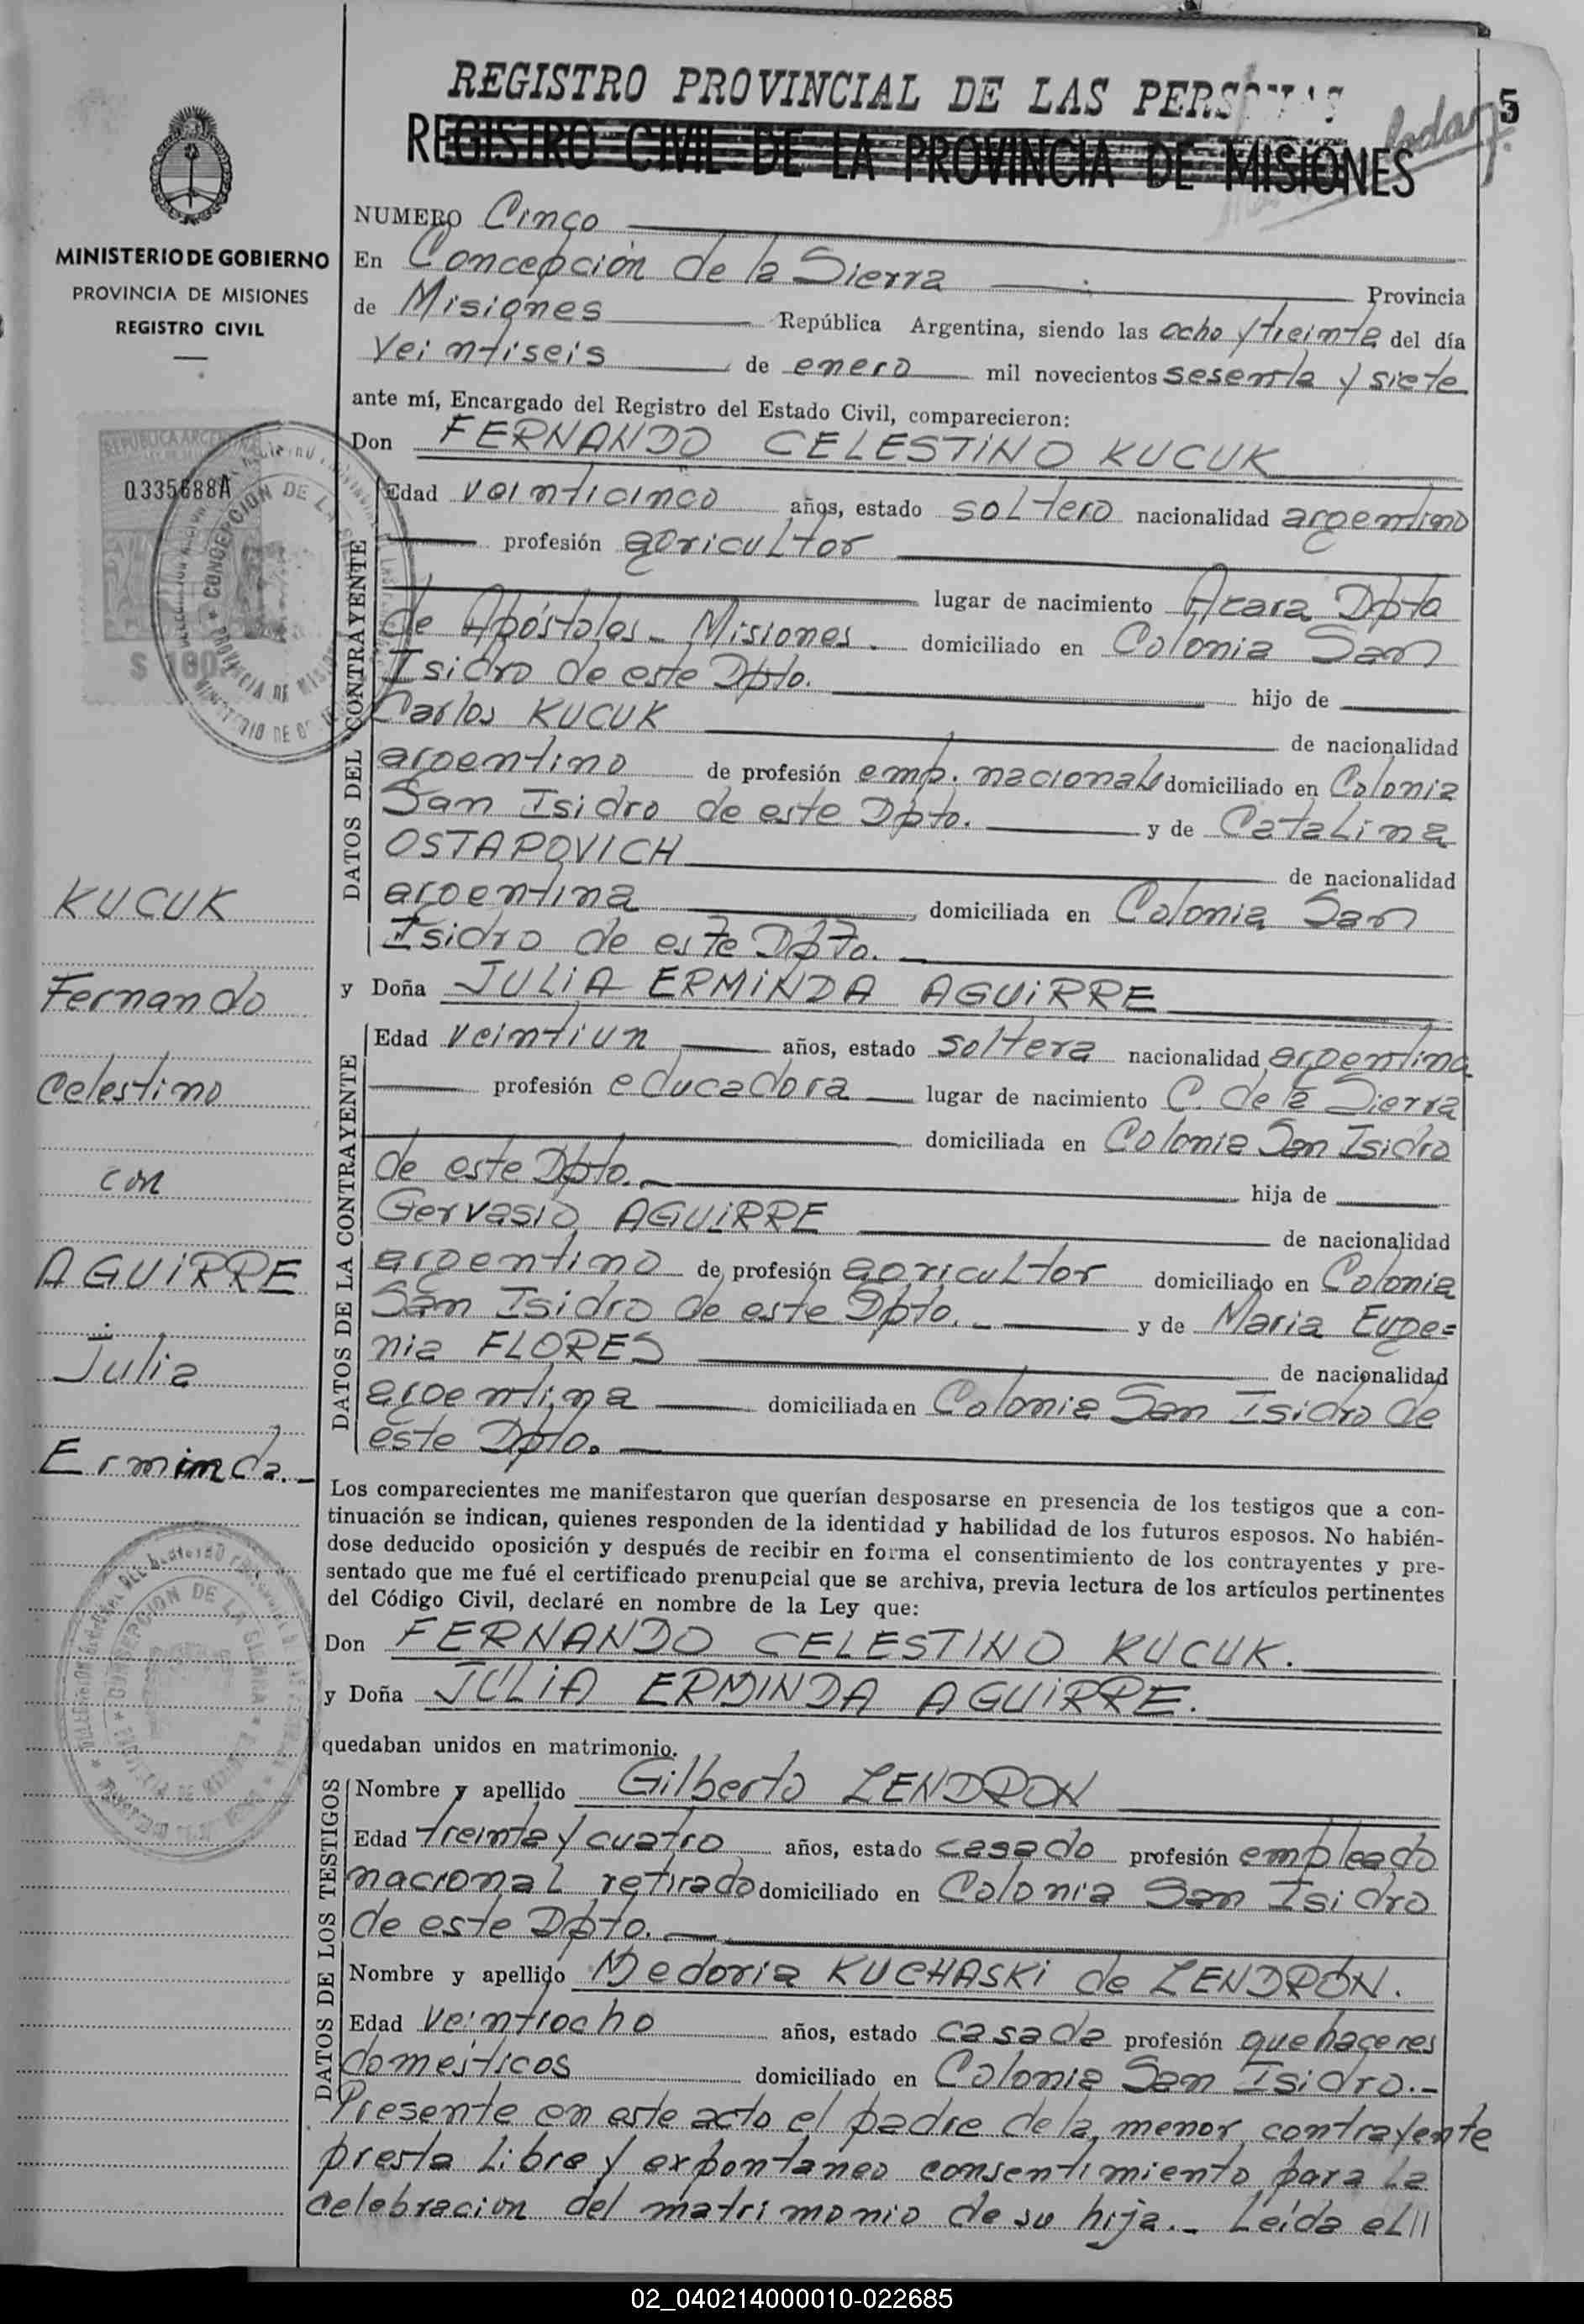 REGISTRO PROVINCIAL DE LAS PERSONAS
REGISTRO CIVIL DE LA PROVINCIA DE MISIONES
5
MINISTERIO DE GOBIERNO
PROVINCIA DE MISIONES
REGISTRO CIVIL
NUMERO Cinco
En Concepción de la Sierra Provincia
de Misiones República Argentina, siendo las ocho y treinta del día
Veintiseis de enero mil novecientos sesenta y siete
ante mí, Encargado del Registro del Estado Civil, comparecieron:
Don FERNANDO CELESTINO KUCUK
REPUBLICA ARGENTINA
0335688A
$ 100
CONCEPCION DE LA
PROVINCIA DE MISIONES
DATOS DEL CONTRAYENTE
Edad veinticinco años, estado soltero nacionalidad argentino
profesión agricultor
lugar de nacimiento Azara Dpto
de Apóstoles - Misiones. domiciliado en Colonia San
Isidro de este Dpto. hijo de
Carlos KUCUK de nacionalidad
argentino de profesión emp. nacional domiciliado en Colonia
San Isidro de este Dpto. y de Catalina
OSTAPOVICH de nacionalidad
argentina domiciliada en Colonia San
Isidro de este Dpto.
KUCUK
Fernando
Celestino
con
AGUIRRE
Julia
Erminda.-
y Doña JULIA ERMINDA AGUIRRE
DATOS DE LA CONTRAYENTE
Edad veintiun años, estado soltera nacionalidad argentina
profesión educadora lugar de nacimiento C. de la Sierra
domiciliada en Colonia San Isidro
de este Dpto.- hija de
Gervasio AGUIRRE de nacionalidad
argentino de profesión agricultor domiciliado en Colonia
San Isidro de este Dpto.- y de Maria Euge=
nia FLORES de nacionalidad
argentina domiciliada en Colonia San Isidro de
este Dpto.
Los comparecientes me manifestaron que querían desposarse en presencia de los testigos que a con-
tinuación se indican, quienes responden de la identidad y habilidad de los futuros esposos. No habién-
dose deducido oposición y después de recibir en forma el consentimiento de los contrayentes y pre-
sentado que me fué el certificado prenupcial que se archiva, previa lectura de los artículos pertinentes
del Código Civil, declaré en nombre de la Ley que:
Don FERNANDO CELESTINO KUCUK.
y Doña JULIA ERMINDA AGUIRRE.
quedaban unidos en matrimonio.
CONCEPCION DE LA SIERRA
PROVINCIA DE MISIONES
DATOS DE LOS TESTIGOS
Nombre y apellido Gilberto ZENDRON
Edad treinta y cuatro años, estado casado profesión empleado
nacional retirado domiciliado en Colonia San Isidro
de este Dpto.
Nombre y apellido Medoria KUCHASKI de ZENDRÓN.
Edad Veintiocho años, estado casada profesión quehaceres
domésticos domiciliado en Colonia San Isidro.-
Presente en este acto el padre de la menor contrayente
presta libre y expontaneo consentimiento para la
celebracion del matrimonio de su hija.- Leída el//
02_040214000010-022685